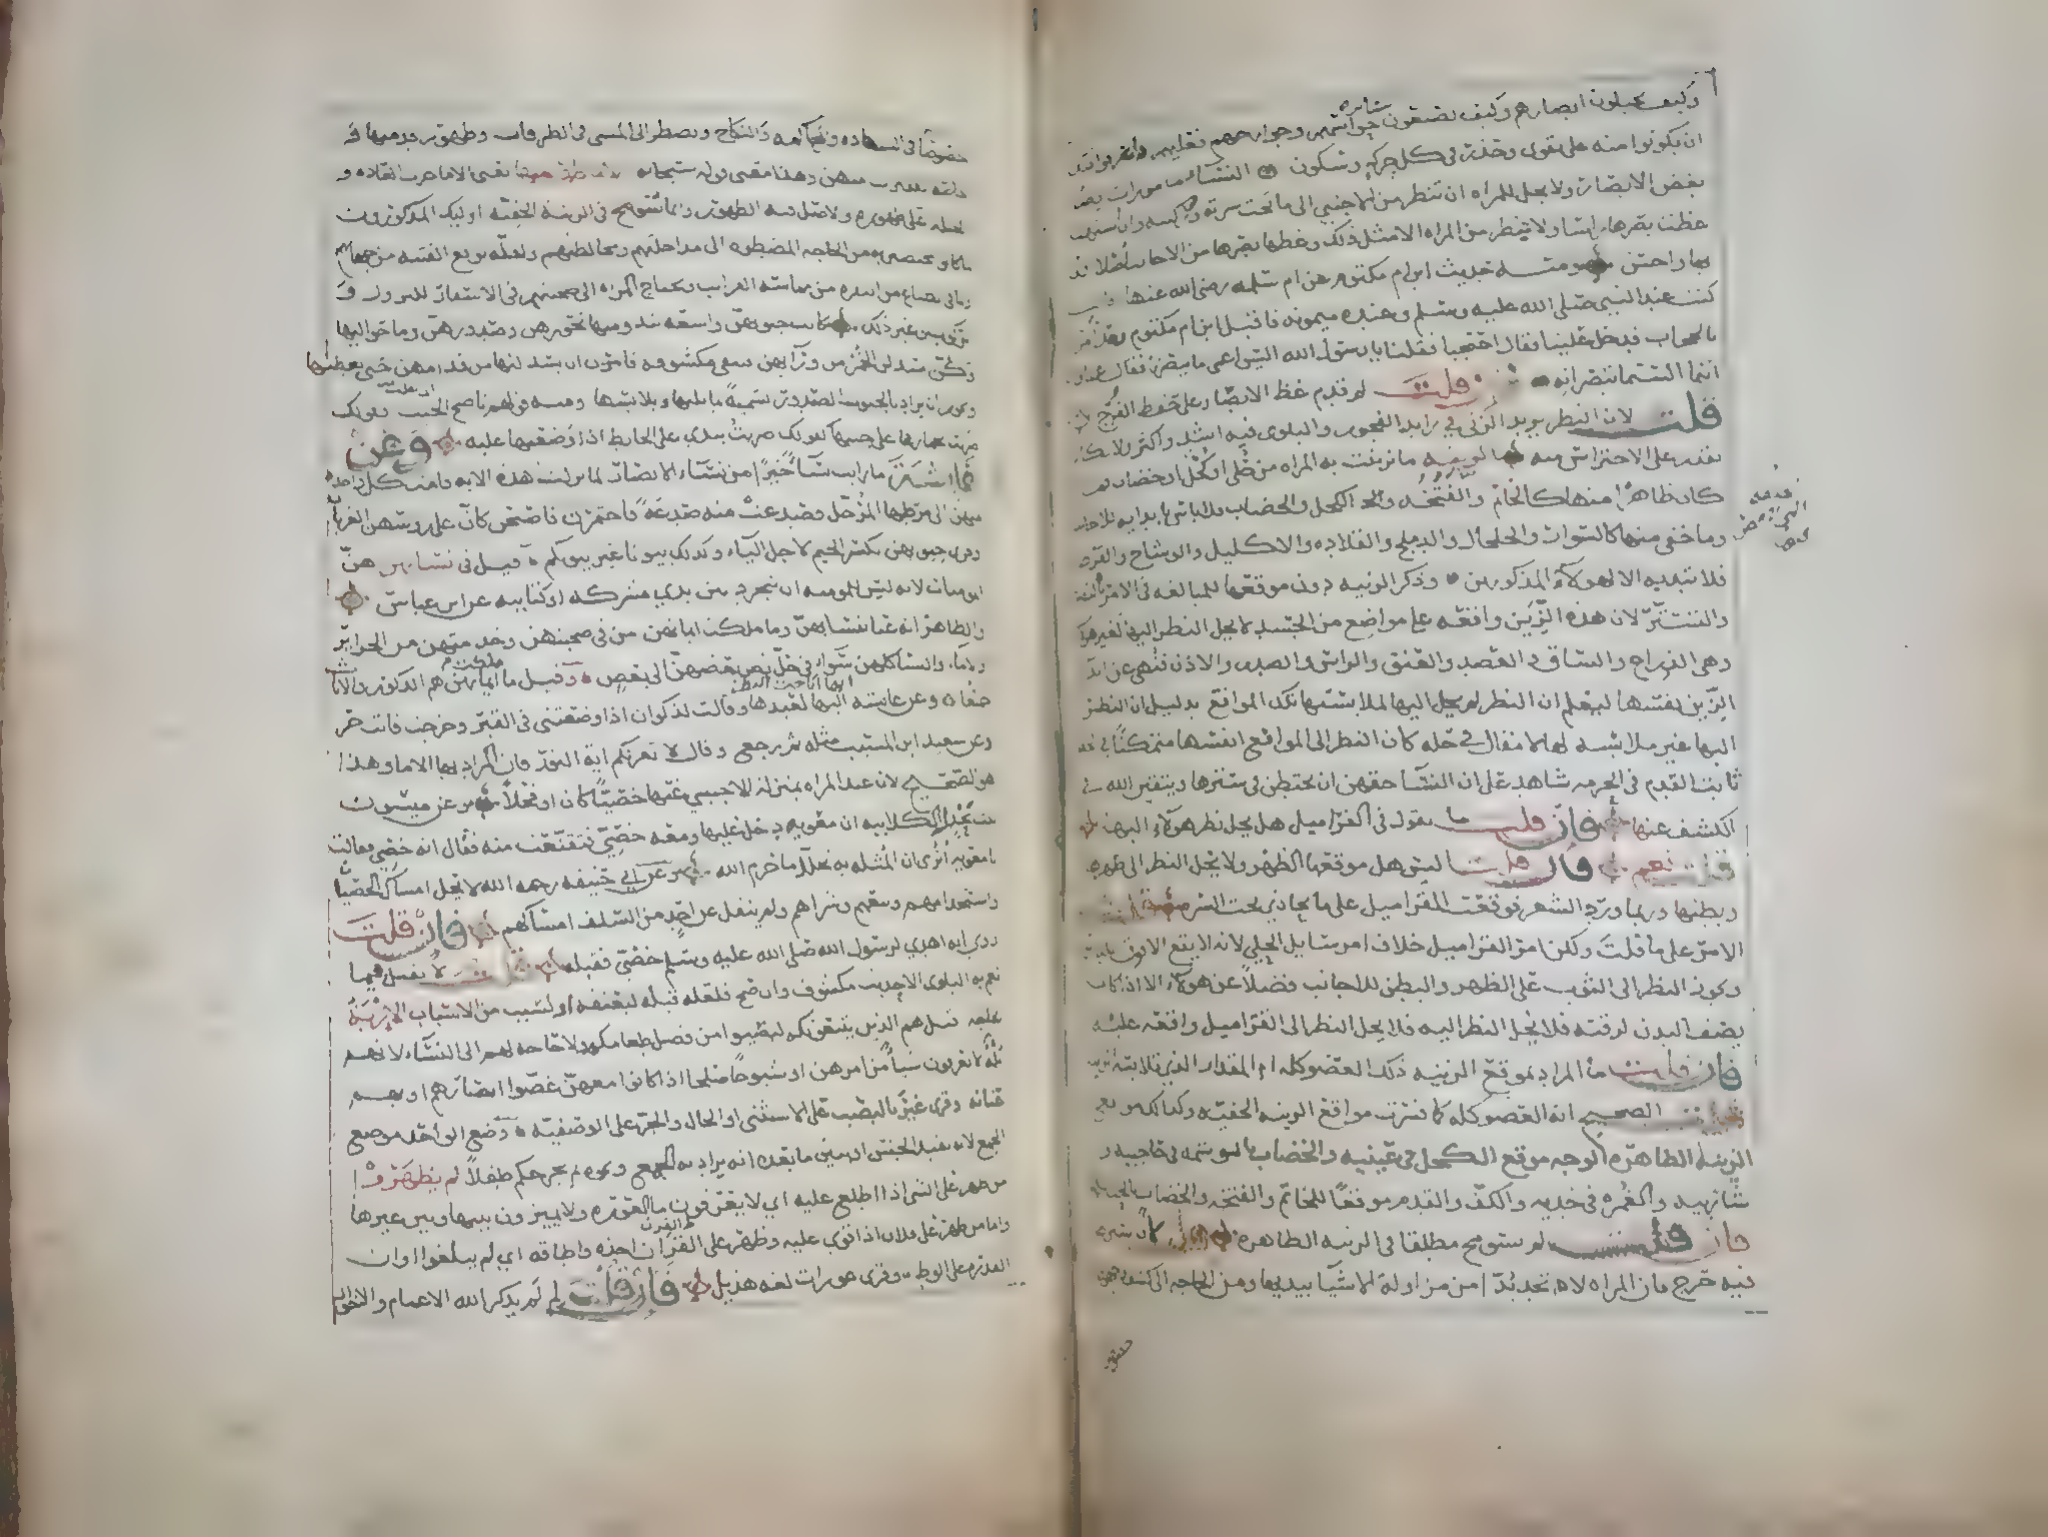 وكيف يجيلون ابصارهم وكيف يصنعون سائر حواسهم وجوارحهم فعليهم
ان يكونوا منه على تقوى وحذر فى كل حركة وسكون النساء مامورات
بغض الابصار ولا يحل للمراه ان تنظر من الاجنبي الى ما تحت سرته
غضت بصرها راسا ولا تنظر من المراه الا مثل ذلك وغضها بصرها من الاجانب اصلا
بها واحسن ومنه حديث ابن ام مكتوم عن ام سلمه رضى الله عنها
كنت عند النبي صلى الله عليه وسلم وعنده ميمونه فاقبل ابن ام مكتوم
بالحجاب فدخل علينا فقال احتجبا فقلنا يا رسول الله اليس اعمى ما يبصرنا فقال
انتما الستما تبصرانه قلت لم قدم غض الابصار على حفظ الفروج
قلت لان النظر بريد الزنى و رايد الفجور والبلوى فيه اشد واكثر ولا
يقدر على الاحتراس منه الزينه ما تزينت به المراه من حلى او كحل او خضاب
كان ظاهرا منها كالخاتم والفتخه والكحل والخضاب فلا باس بابدايه
وما خفى منها كالسوار والخلخال والدملج والقلاده والاكليل والوشاح والقرط
فلا تبديه الا لهولاء المذكورين وذكر الزينه دون موقعها للمبالغه فى الامر
والتستر لان هذه الزين واقعه على مواضع من الجسد لا يحل النظر اليها لغير هولا
وهى الذراع والساق والعضد والعنق والراس والصدر والاذن فنهى عن
الزين نفسها ليعلم ان النظر لم يحل اليها لملابستها تلك المواقع بدليل ان النظر
اليها غير ملابسه لها لا مقال في حله كان النظر الى المواقع انفسها متمكنا
ثابت القدم فى الحرمه شاهد على ان النسا حقهن ان يحتطن فى سترها ويتقين الله فى
الكشف عنها فان قلت ما تقول فى القراميل هل يحل نظر هولاء اليها
قلت نعم فان قلت اليس هل موقعها الظهر ولا يحل النظر الى ظهرها
وبطنها وربما ورد الشعر فوقعت القراميل على ما يحاذي تحت السره
الامر على ما قلت ولكن امر القراميل خلاف امر سايل الحلي لانه لا يقع الا فوق
ويجوز النظر الى الثوب على الظهر والبطن للاجانب فضلا عن هولاء الا اذا كان
يصف البدن لرقته فلا يحل النظر اليه فلا يحل النظر الى القراميل واقعه عليه
فان قلت ما المراد بموقع الزينه ذلك العضو كله ام المقدار الذي تلابسه
الصحيح انه العضو كله كما فسرت مواقع الزينه الخفيه وكذلك مواقع
الزينه الظاهره الوجه موقع الكحل في عينيه والخضاب بالوسمه فى حاجبيه و
شاربيه والغمره فى خديه والكف والقدم موقعا للخاتم والفتخه والخضاب
فان قلت لم سومح مطلقا فى الزينه الظاهره لان سترها
فيه حرج فان المراه لا تجد بدا من مزاولة الاشيا بيديها ومن الحاجه الى كشف وجهها
خصوصا فى الشهاده والمحاكمه والنكاح وتضطر الى المشى فى الطرقات وظهور قدميها
وهذا معنى قوله سبحانه الا ما ظهر منها يعنى الا ما جرت العاده و
الجبله على ظهوره والاصل فيه الظهور وانما سومح فى الزينه الخفيه اوليك المذكورون
من الحاجه المضطره الى مداخلتهم ومخالطتهم ولقله توقع الفتنه من جهاتهم
من مماسه القرايب وتحتاج المراه الى صحبتهم فى الاسفار للنزول و
الركوب وغير ذلك كانت جيوبهن واسعه تبدو منها نحورهن وصدورهن وما حواليها
وكن يسدلن الخمر من ورايهن فتبقى مكشوفه فامرن ان يسدلنها من قدامهن حتى يغطينها
ويجوز ان يراد بالجيوب الصدور تسمية بما يليها ويلابسها ومنه قولهم ناصح الجيب
ضربت بخمارها على جيبها كقولك ضربت بيدي على الحايط اذا وضعتها عليه وعن
عايشه ما رايت نساء خيرا من نساء الانصار لما نزلت هذه الايه قامت كل واحده
منهن الى مرطها المرحل فصدعت منه صدعة فاختمرن فاصبحن كان على روسهن الغربان
وقري جيوبهن بكسر الجيم لاجل الياء وكذلك بيوتا غير بيوتكم قيل فى نسايهن هن
المومنات لانه ليس للمومنه ان تتجرد بين يدي مشركه او كتابيه عن ابن عباس
والظاهر انه عنا بنسايهن وما ملكت ايمانهن من فى صحبتهن وخدمتهن من الحراير
والاماء والنساء كلهن سواء فى حل نظر بعضهن الى بعض وقيل ما ملكت ايمانهن هم الذكور والاناث
جميعا وعن عايشه انها اباحت النظر اليها لعبدها وقالت لذكوان اذا وضعتنى فى القبر وخرجت فانت حر
وعن سعيد ابن المسيب مثله ثم رجع وقال لا تغرنكم اية النور فان المراد بها الاما وهذا
هو الصحيح لان عبد المراه بمنزلة الاجنبي عنها خصيا كان او فحلا وعن ميسون
بنت بحدل الكلابيه ان معويه دخل عليها ومعه خصي فتقنعت منه فقال انه خصي فقالت
يا معويه اترى ان المثله به تحلل ما حرم الله وعن ابي حنيفه رحمه الله لا يحل امساك الخصيان
واستخدامهم وبيعهم وشراهم ولم ينقل عن احد من السلف امساكهم فان قلت
روى انه اهدي لرسول الله صلى الله عليه وسلم خصي فقبله قلت لا يقبل فيما
تعم به البلوى الا حديث مكشوف وان صح فلعله قبله ليعتقه او لسبب من الاسباب الاربة
الحاجه قيل هم الذين يتبعونكم ليصيبوا من فضل طعامكم ولا حاجه لهم الى النساء لانهم
بله لا يعرفون شيا من امرهن او شيوخ صلحا اذا كانوا معهن غضوا ابصارهم او بهم
عنانه وقري غير بالنصب على الاستثنى او الحال والجر على الوصفيه وضع الواحد موضع
الجمع لانه يفيد الجنس او يبين ما بعده انه يراد به الجمع ونحوه ثم يخرجكم طفلا لم يظهروا
من ظهر على الشى اذا اطلع عليه اي لا يعرفون ما العوره ولا يميزون بينها وبين غيرها
واما من ظهر على فلان اذا قوي عليه وظهر على القران اخذه واطاقه اي لم يبلغوا اوان
القدره على الوطء وقري عورات لغه هذيل فان قلت لم لم يذكر الله الاعمام والاخوال